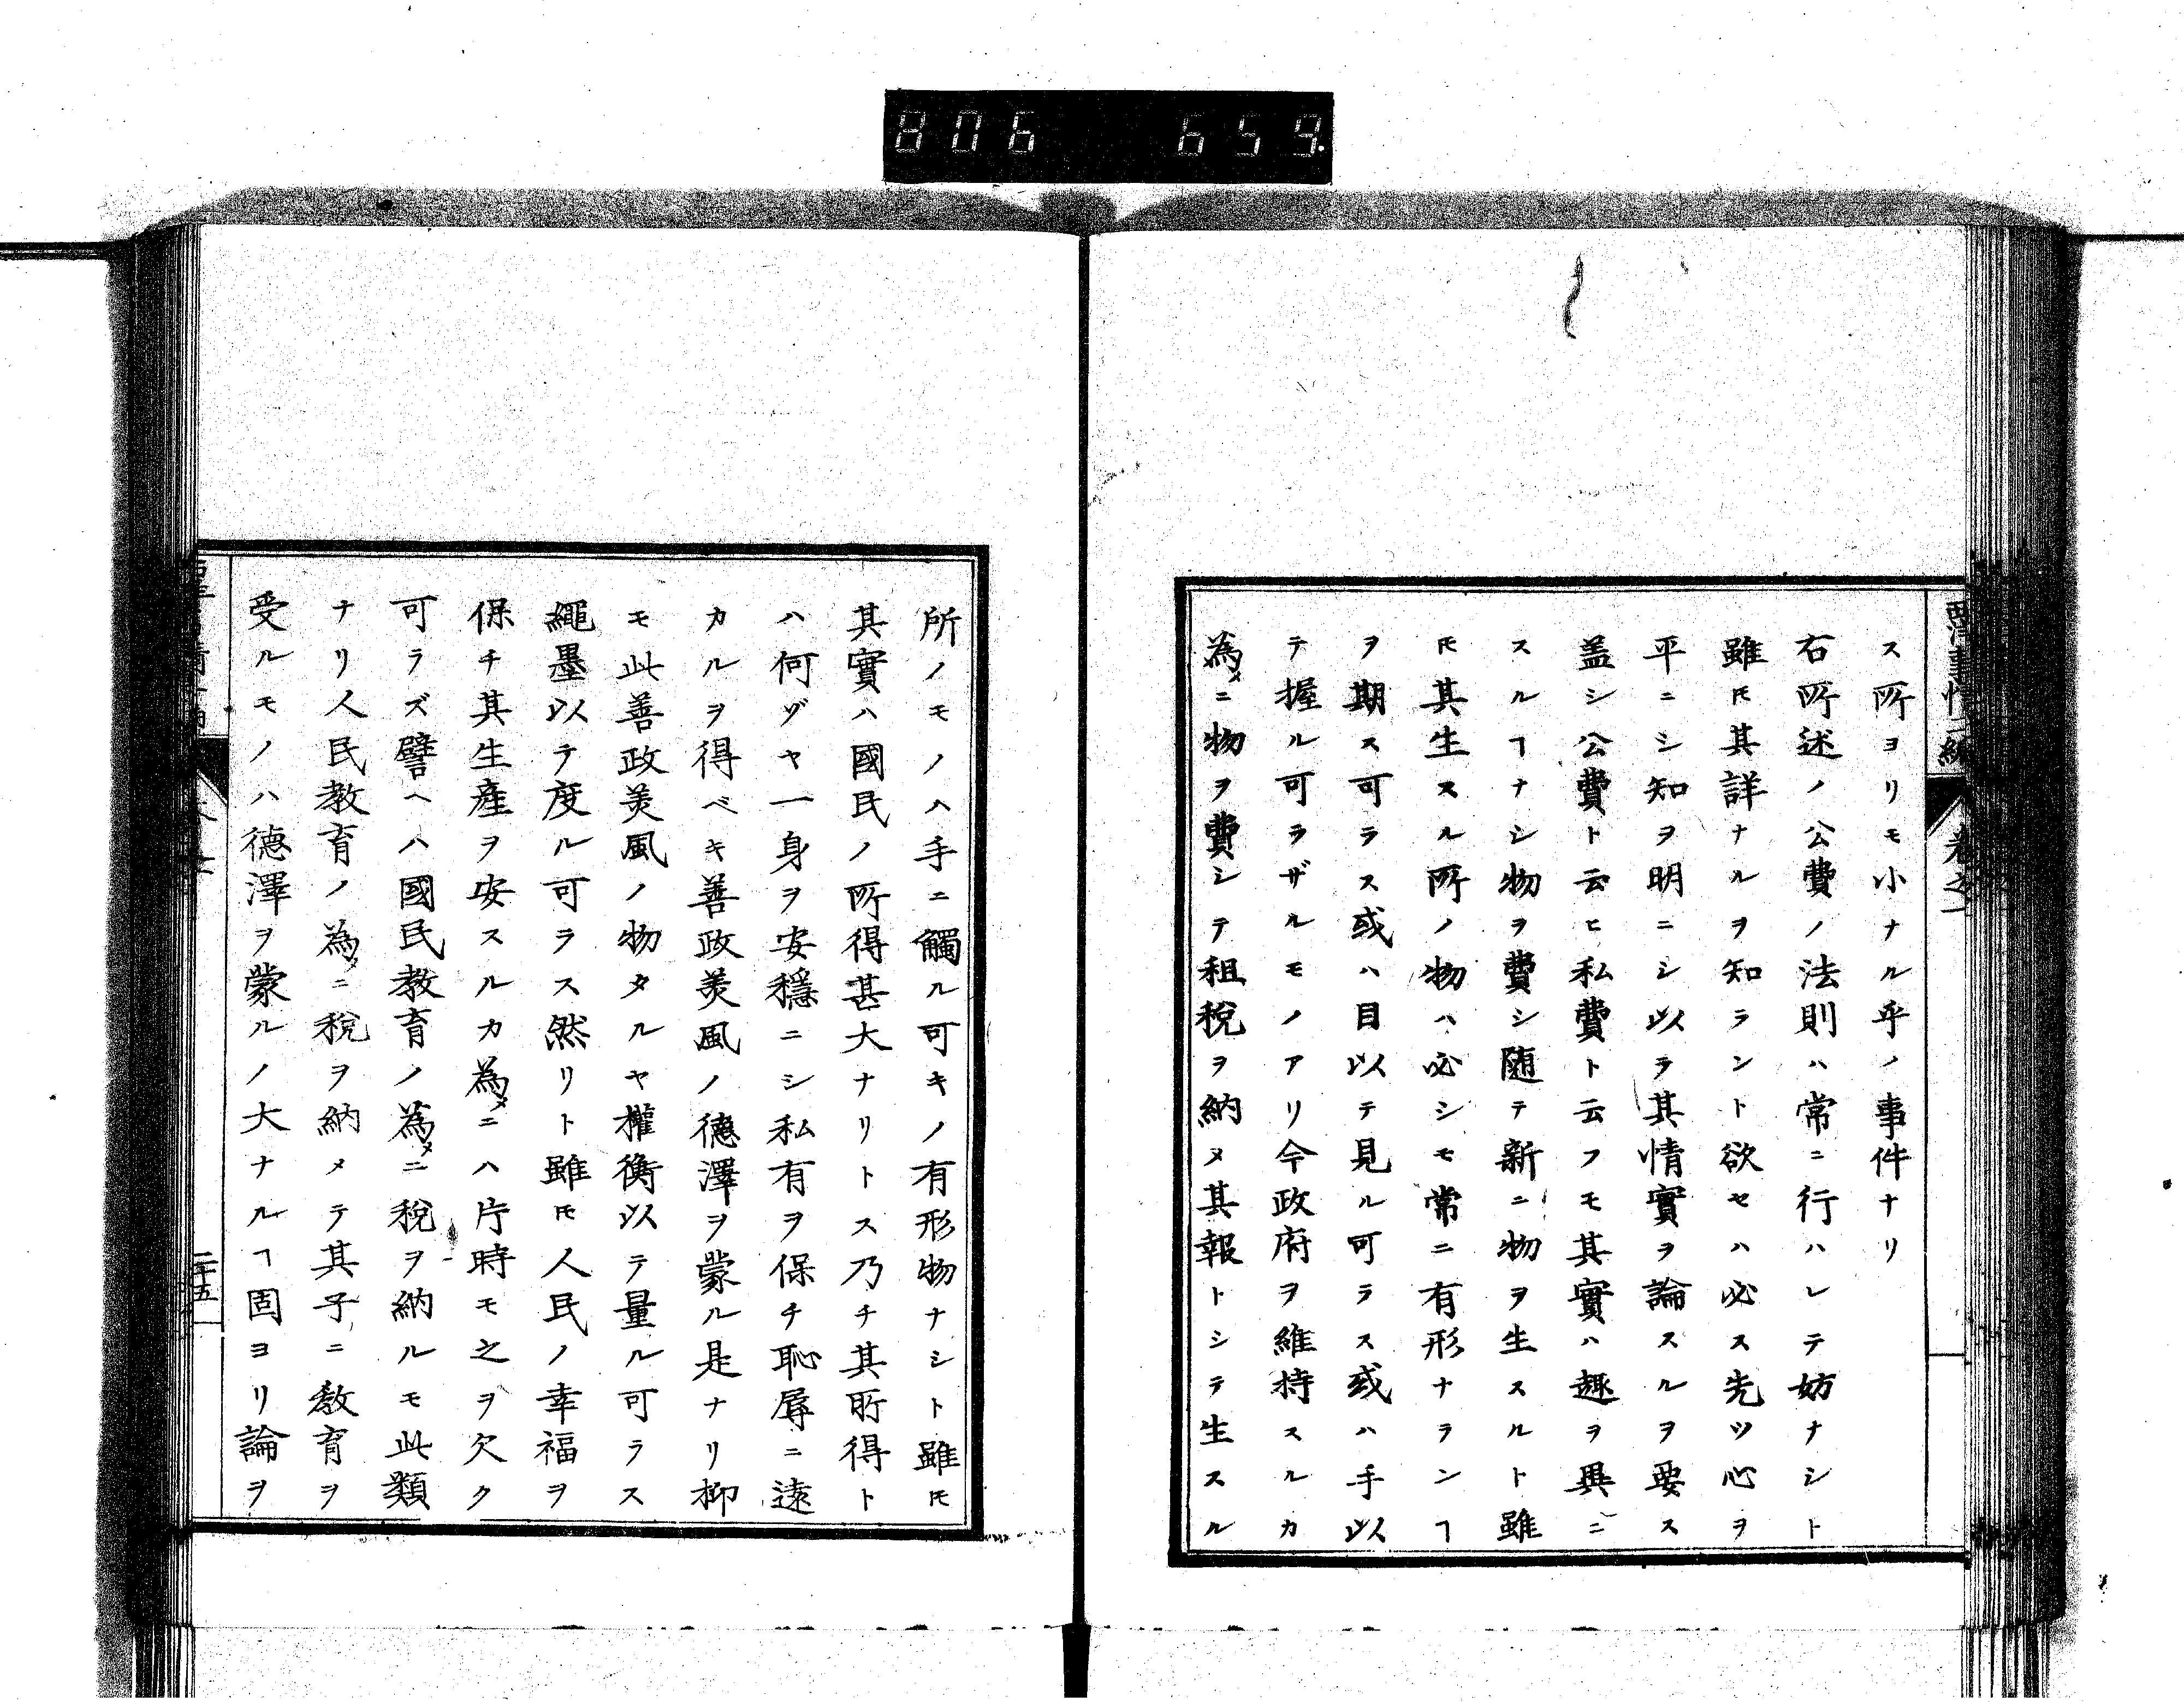 806 659.
西洋事情二編 卷之一
ス所ヨリモ小ナル乎ノ事件ナリ
右所述ノ公費ノ法則ハ常ニ行ハレテ妨ナシト
雖𪜈其詳ナルヲ知ラント欲セハ必ス先ツ心ヲ
平ニシ知ヲ明ニシ以テ其情實ヲ論スルヲ要ス
盖シ公費ト云ヒ私費ト云フモ其實ハ趣ヲ異ニ
スルヿナシ物ヲ費シ随テ新ニ物ヲ生スルト雖
𪜈其生スル所ノ物ハ必シモ常ニ有形ナランヿ
ヲ期ス可ラス或ハ目以テ見ル可ラス或ハ手以
テ握ル可ラザルモノアリ今政府ヲ維持スルカ
為メニ物ヲ費シテ租税ヲ納ヌ其報トシテ生スル
所ノモノハ手ニ觸ル可キノ有形物ナシト雖𪜈
其實ハ國民ノ所得甚大ナリトス乃チ其所得ト
ハ何ヅヤ一身ヲ安穩ニシ私有ヲ保チ恥辱ニ遠
カルヲ得ベキ善政美風ノ德澤ヲ蒙ル是ナリ抑
モ此善政美風ノ物タルヤ權衡以テ量ル可ラス
繩墨以テ度ル可ラス然リト雖𪜈人民ノ幸福ヲ
保チ其生産ヲ安スルカ為メニハ片時モ之ヲ欠ク
可ラズ譬ヘハ國民教育ノ為メニ税ヲ納ルモ此類
ナリ人民教育ノ為メニ税ヲ納メテ其子ニ教育ヲ
受ルモノハ德澤ヲ蒙ルノ大ナルヿ固ヨリ論ヲ
二十五